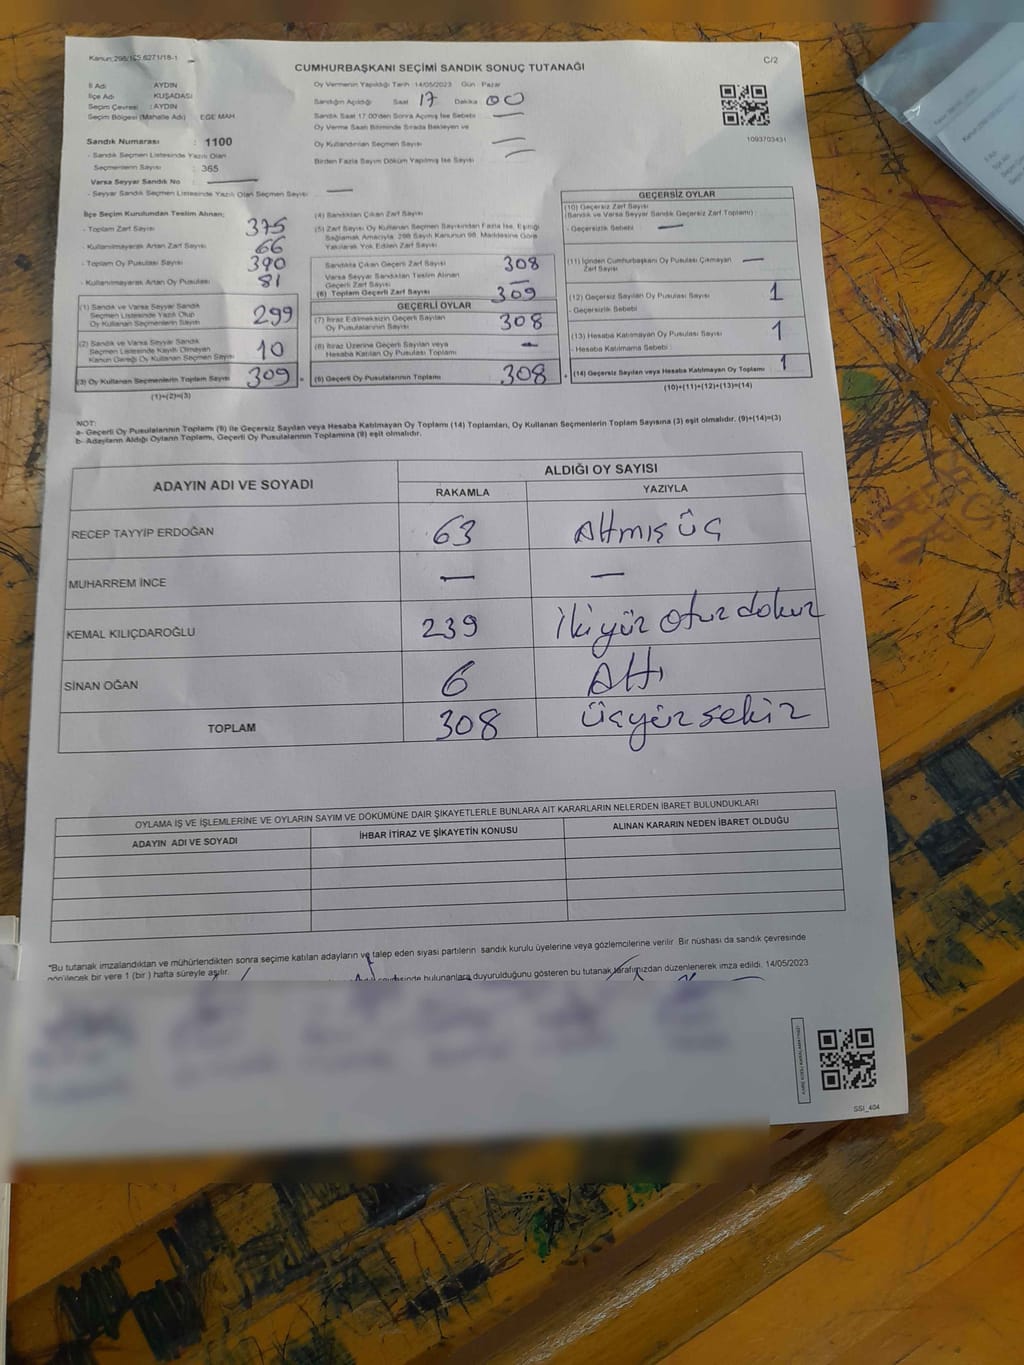 Kanun:298/105.6271/18-1
CUMHURBAŞKANI SEÇİMİ SANDIK SONUÇ TUTANAĞI
C/2
İl Adı : AYDIN
İlçe Adı : KUŞADASI
Seçim Çevresi : AYDIN
Seçim Bölgesi (Mahalle Adı) : EGE MAH.
Oy Vermenin Yapıldığı Tarih :14/05/2023 Gün : Pazar
Sandığın Açıldığı Saat 17 Dakika 00
Sandık Saat 17.00'den Sonra Açımış İse Sebebi —
Oy Verme Saati Bitiminde Sırada Bekleyen ve
Oy Kullandırılan Seçmen Sayısı —
Birden Fazla Sayım Döküm Yapılmış İse Sayısı —
1093703431
Sandık Numarası : 1100
- Sandık Seçmen Listesinde Yazılı Olan
Seçmenlerin Sayısı : 365
Varsa Seyyar Sandık No —
- Seyyar Sandık Seçmen Listesinde Yazılı Olan Seçmen Sayısı : —
İlçe Seçim Kurulundan Teslim Alınan;
- Toplam Zarf Sayısı 375
- Kullanılmayarak Artan Zarf Sayısı 66
- Toplam Oy Pusulası Sayısı 390
- Kullanılmayarak Artan Oy Pusulası 81
(1) Sandık ve Varsa Seyyar Sandık
Seçmen Listesinde Yazılı Olup
Oy Kullanan Seçmenlerin Sayısı 299
(2) Sandık ve Varsa Seyyar Sandık
Seçmen Listesinde Kayıtlı Olmayan
Kanun Gereği Oy Kullanan Seçmen Sayısı 10
(3) Oy Kullanan Seçmenlerin Toplam Sayısı 309 =
(1)+(2)=(3)
(4) Sandıktan Çıkan Zarf Sayısı
(5) Zarf Sayısı Oy Kullanan Seçmen Sayısından Fazla İse, Eşitliği
Sağlamak Amacıyla, 298 Sayılı Kanunun 98. Maddesine Göre
Yakılarak Yok Edilen Zarf Sayısı
Sandıkta Çıkan Geçerli Zarf Sayısı 308
Varsa Seyyar Sandıktan Teslim Alınan
Geçerli Zarf Sayısı —
(6) Toplam Geçerli Zarf Sayısı 309
GEÇERLİ OYLAR
(7) İtiraz Edilmeksizin Geçerli Sayılan
Oy Pusulalarının Sayısı 308
(8) İtiraz Üzerine Geçerli Sayılan veya
Hesaba Katılan Oy Pusulası Toplamı —
(9) Geçerli Oy Pusulalarının Toplamı 308 +
GEÇERSİZ OYLAR
(10) Geçersiz Zarf Sayısı
(Sandık ve Varsa Seyyar Sandık Geçersiz Zarf Toplamı) :
- Geçersizlik Sebebi : —
(11) İçinden Cumhurbaşkanı Oy Pusulası Çıkmayan
Zarf Sayısı —
(12) Geçersiz Sayılan Oy Pusulası Sayısı 1
- Geçersizlik Sebebi :
(13) Hesaba Katılmayan Oy Pusulası Sayısı 1
- Hesaba Katılmama Sebebi :
(14) Geçersiz Sayılan veya Hesaba Katılmayan Oy Toplamı 1
(10)+(11)+(12)+(13)=(14)
NOT:
a- Geçerli Oy Pusulalarının Toplamı (9) ile Geçersiz Sayılan veya Hesaba Katılmayan Oy Toplamı (14) Toplamları, Oy Kullanan Seçmenlerin Toplam Sayısına (3) eşit olmalıdır. (9)+(14)=(3)
b- Adayların Aldığı Oyların Toplamı, Geçerli Oy Pusulalarının Toplamına (9) eşit olmalıdır.
ADAYIN ADI VE SOYADI
ALDIĞI OY SAYISI
RAKAMLA YAZIYLA
RECEP TAYYİP ERDOĞAN 63 Altmış üç
MUHARREM İNCE — —
KEMAL KILIÇDAROĞLU 239 İkiyüz otuz dokuz
SİNAN OĞAN 6 Altı
TOPLAM 308 Üçyüz sekiz
OYLAMA İŞ VE İŞLEMLERİNE VE OYLARIN SAYIM VE DÖKÜMÜNE DAİR ŞİKAYETLERLE BUNLARA AİT KARARLARIN NELERDEN İBARET BULUNDUKLARI
ADAYIN ADI VE SOYADI İHBAR İTİRAZ VE ŞİKAYETİN KONUSU ALINAN KARARIN NEDEN İBARET OLDUĞU
*Bu tutanak imzalandıktan ve mühürlendikten sonra seçime katılan adayların ve talep eden siyasi partilerin sandık kurulu üyelerine veya gözlemcilerine verilir. Bir nüshası da sandık çevresinde
görülecek bir yere 1 (bir ) hafta süreyle asılır. bulunanlara duyurulduğunu gösteren bu tutanak tarafımızdan düzenlenerek imza edildi. 14/05/2023
SSI_404